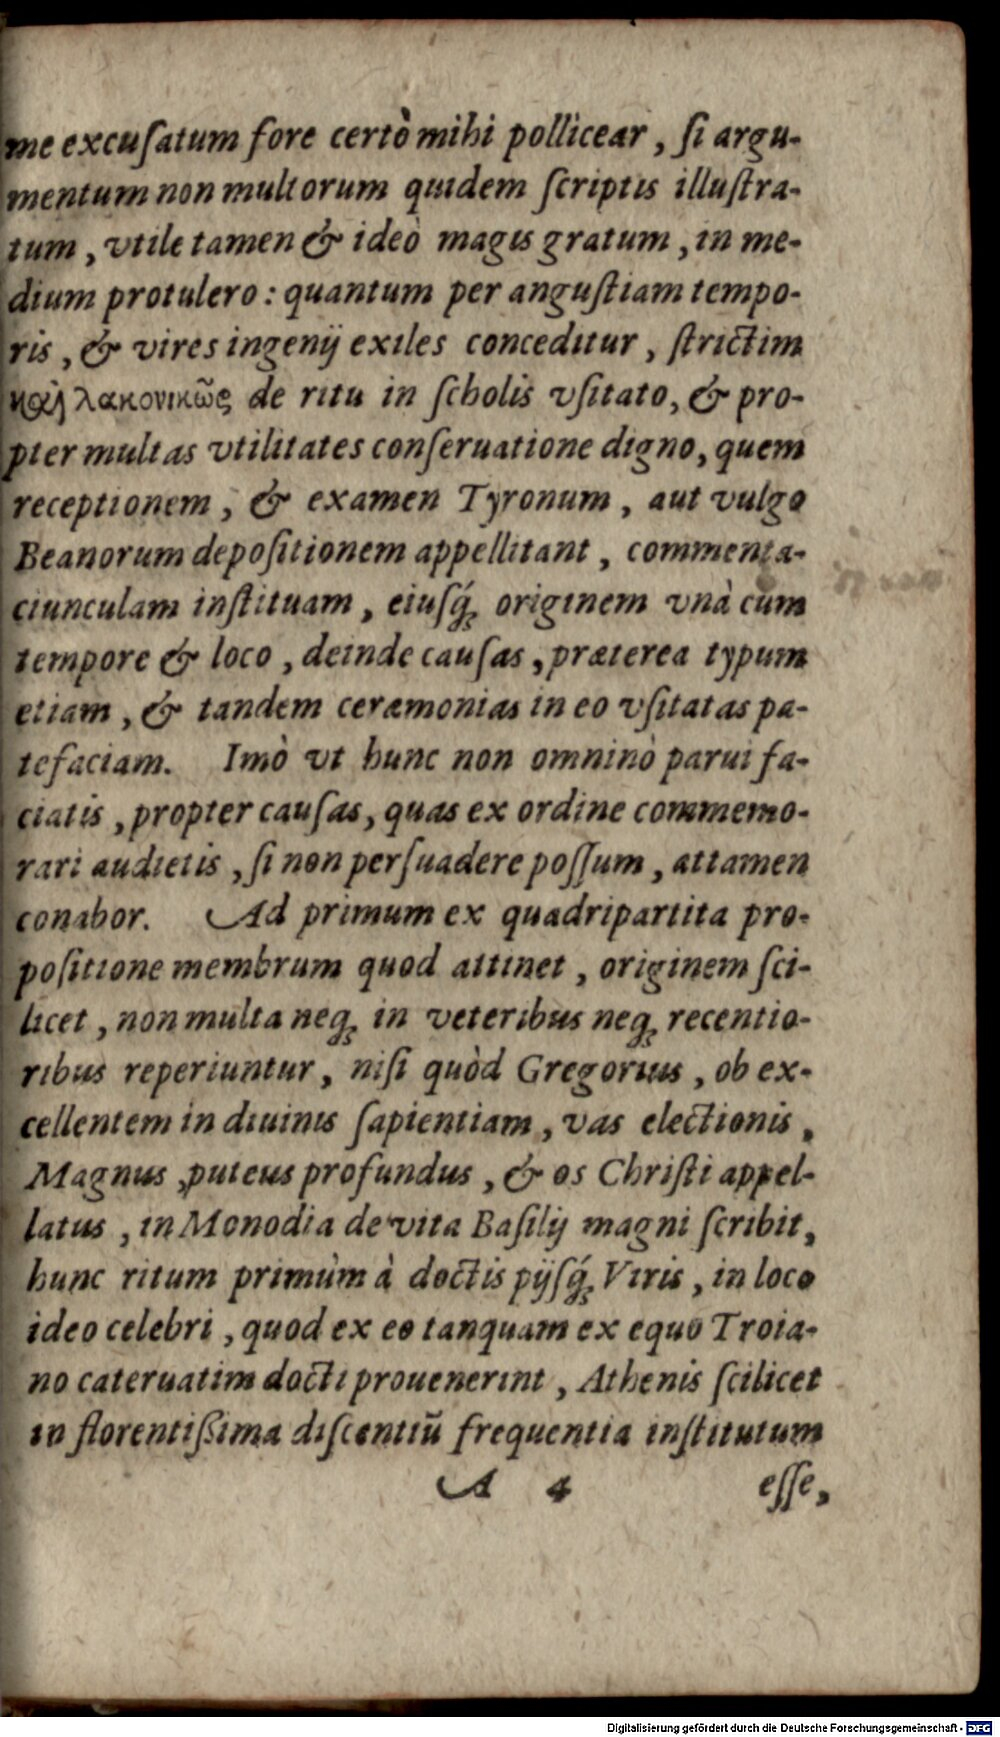 me excuſatum fore certò mihi pollicear, ſi argu-
mentum non multorum quidem ſcriptis illuſtra-
tum, vtile tamen & ideò magis gratum, in me-
dium protulero: quantum per anguſtiam tempo-
ris, & vires ingenij exiles conceditur, ſtrictim
καὶ λακονικῶς de ritu in ſcholis vſitato, & pro-
pter multas vtilitates conſeruatione digno, quem
receptionem, & examen Tyronum, aut vulgo
Beanorum depoſitionem appellitant, commenta-
ciunculam inſtituam, eiuſq́ꝫ originem vnà cum
tempore & loco, deinde cauſas, præterea typum
etiam, & tandem ceræmonias in eo vſitatas pa-
tefaciam. Imò vt hunc non omninò parui fa-
ciatis, propter cauſas, quas ex ordine commemo-
rari audietis, ſi non perſuadere poſſum, attamen
conabor. Ad primum ex quadripartita pro-
poſitione membrum quod attinet, originem ſci-
licet, non multa neqꝫ in veteribus neqꝫ recentio-
ribus reperiuntur, niſi quòd Gregorius, ob ex-
cellentem in diuinis ſapientiam, vas electionis,
Magnus, puteus profundus, & os Chriſti appel-
latus, in Monodia de vita Baſilij magni ſcribit,
hunc ritum primùm à doctis pijſq́ꝫ Viris, in loco
ideo celebri, quod ex eo tanquam ex equo Troia-
no cateruatim docti prouenerint, Athenis ſcilicet
in florentißima diſcentiũ frequentia inſtitutum
A 4 eſſe,
Digitalisierung gefördert durch die Deutsche Forschungsgemeinschaft - DFG